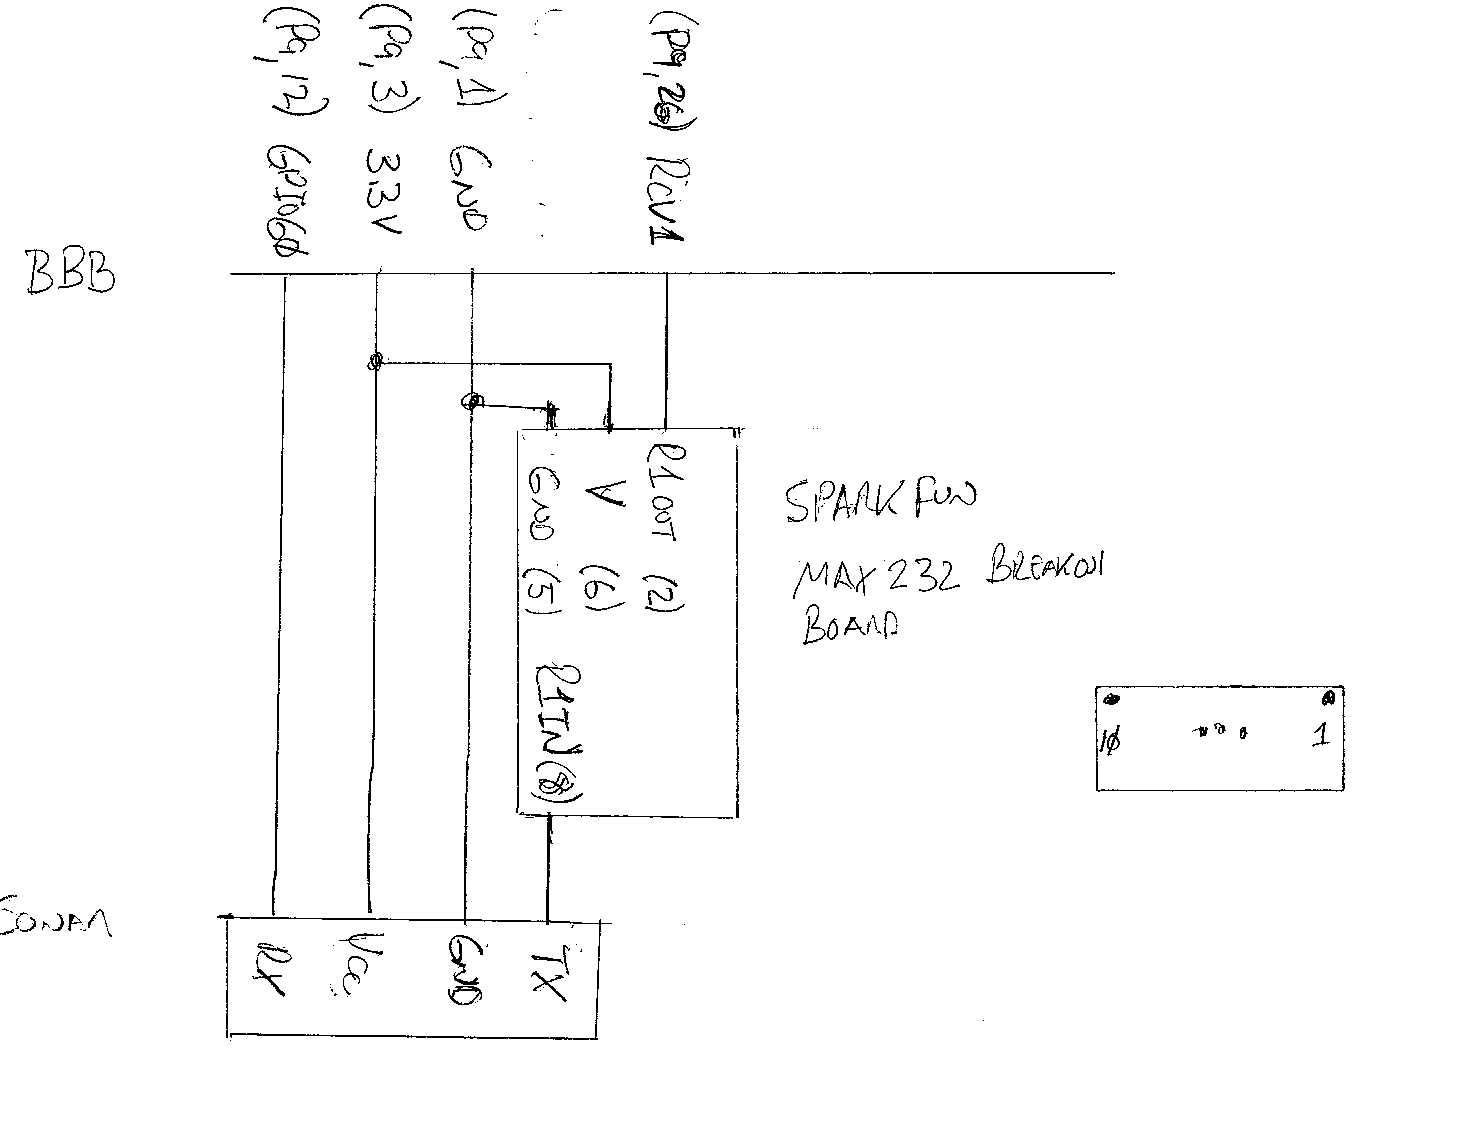 (P9,12) GPIO60
(P9,3) 3.3V
(P9,1) GND
(P9,26) RCV1
BBB
R1OUT (2)
V (6)
GND (5)
R1IN (8)
SPARKFUN
MAX232 BREAKOUT
BOARD
10 ... 1
SONAR
RX
VCC
GND
TX